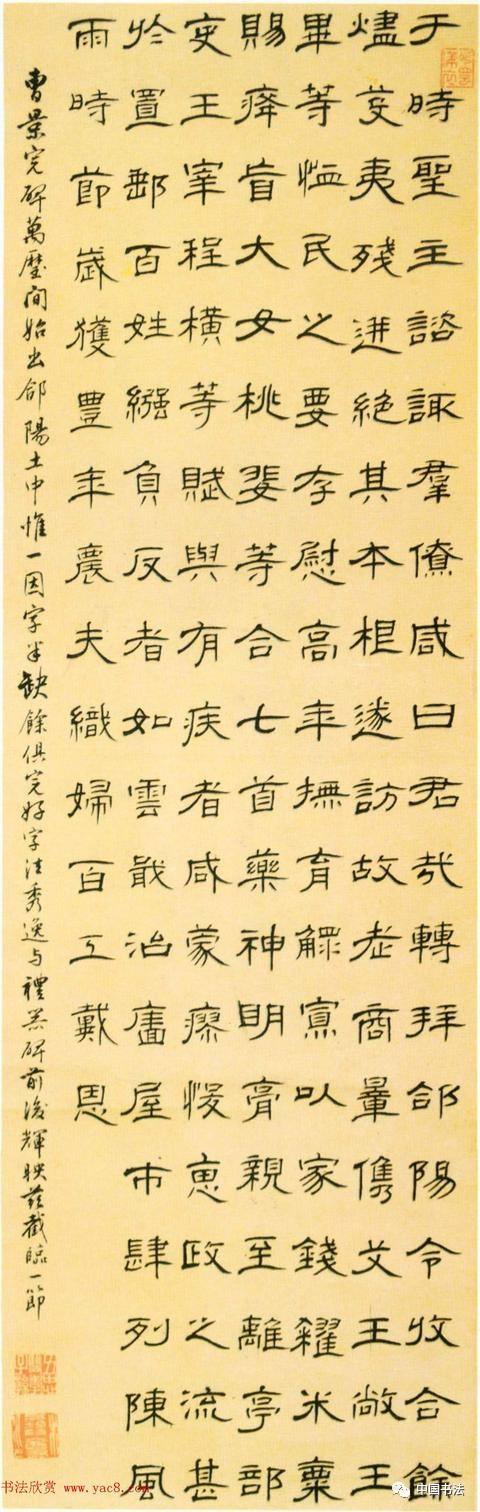 于時聖主諮諏羣僚咸曰君哉轉拜郃陽令收合餘
燼芟夷殘迸絕其本根遂訪故老商暈儁艾王敞王
畢等恤民之要存慰高年撫育鰥寡以家錢糴米粟
賜癃盲大女桃婓等合七首藥神明膏親至離亭部
吏王宰程橫等賦與有疾者咸蒙瘳悛惠政之流甚
於置郵百姓繦負反者如雲戢治廧屋市肆列陳風
雨時節歲獲豊年農夫織婦百工戴恩
曹景完碑萬曆間始出郃陽土中惟一因字半缺餘俱完好字法秀逸与禮器碑前後輝映茲截臨一節
书法欣赏 www.yac8.com
中国书法